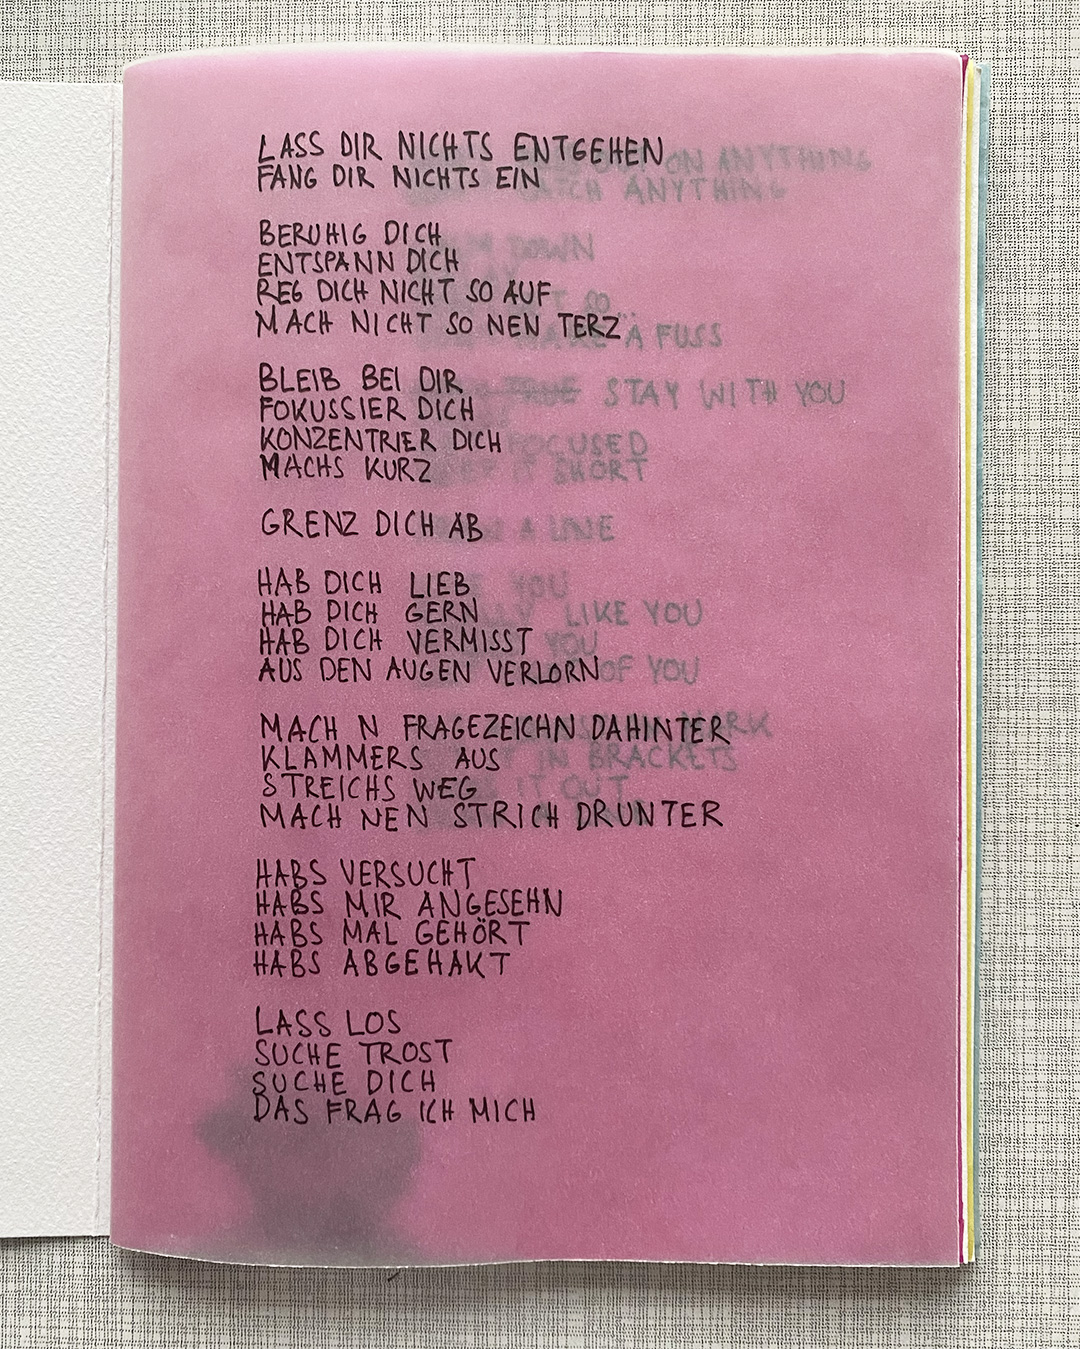 LASS DIR NICHTS ENTGEHEN
FANG DIR NICHTS EIN
BERUHIG DICH
ENTSPANN DICH
REG DICH NICHT SO AUF
MACH NICHT SO NEN TERZ
BLEIB BEI DIR
FOKUSSIER DICH
KONZENTRIER DICH
MACHS KURZ
GRENZ DICH AB
HAB DICH LIEB
HAB DICH GERN
HAB DICH VERMISST
AUS DEN AUGEN VERLORN
MACH N FRAGEZEICHN DAHINTER
KLAMMERS AUS
STREICHS WEG
MACH NEN STRICH DRUNTER
HABS VERSUCHT
HABS MIR ANGESEHN
HABS MAL GEHÖRT
HABS ABGEHAKT
LASS LOS
SUCHE TROST
SUCHE DICH
DAS FRAG ICH MICH
ON ANYTHING
ANYTHING
DOWN
SO...
A FUSS
STAY WITH YOU
FOCUSED
IT SHORT
A LINE
YOU
LIKE YOU
YOU
OF YOU
IN BRACKETS
IT OUT